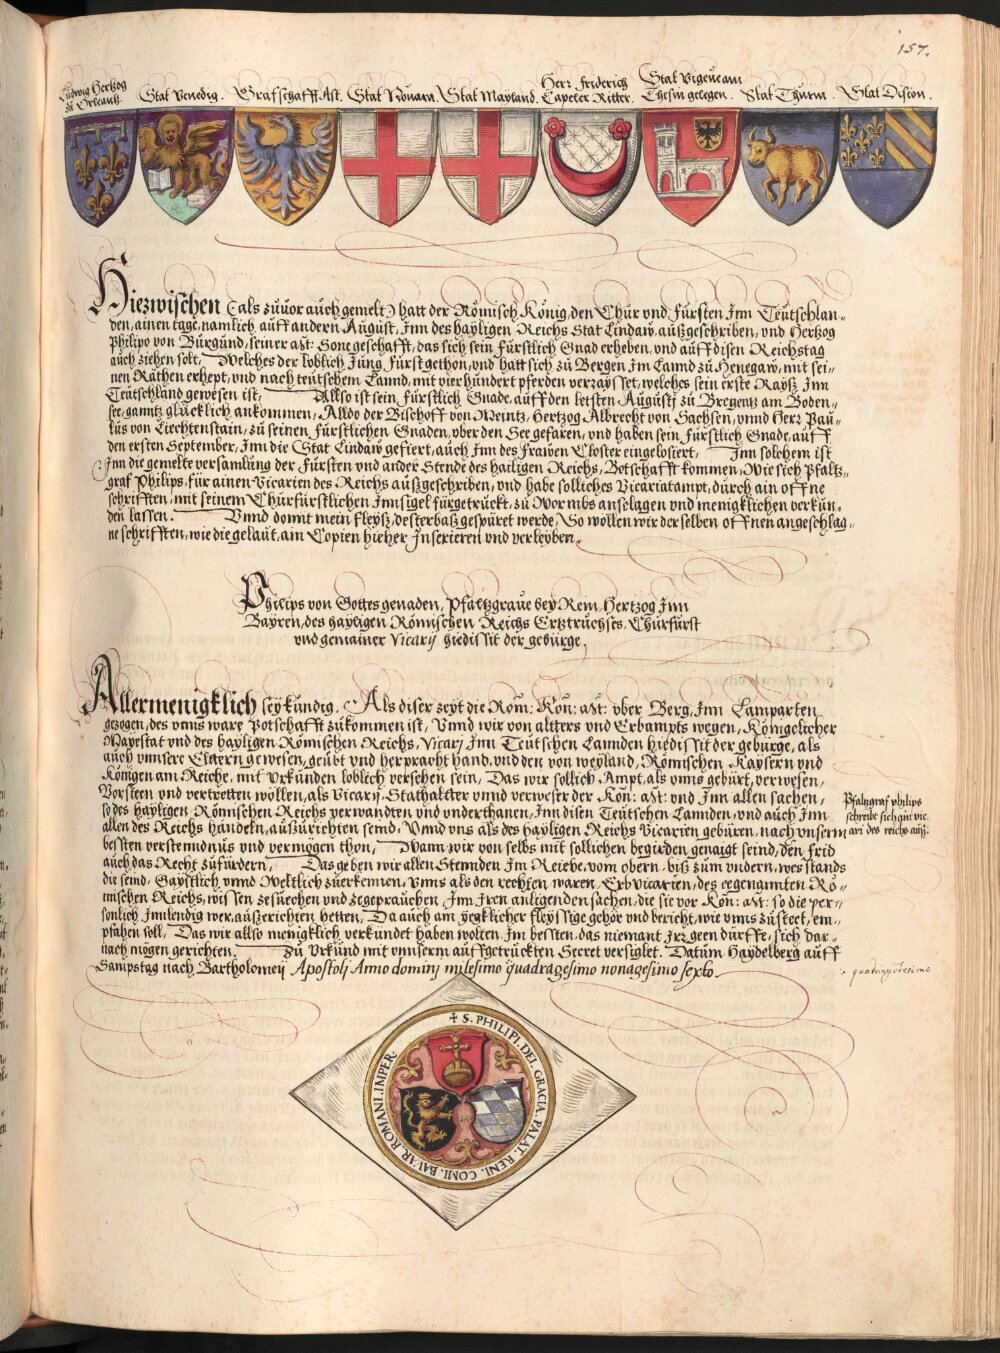 157.
Ludwig Hertzog
zu Orleantz.
Stat Venedig.
Grafschafft Ast.
Stat Nouara.
Stat Mayland.
Herr Friderich
Capeler Ritter.
Stat Vigeueam
Thesin gelegen.
Stat Thurin
Stat Dision.
Hiezwischen (als zuuor auch gemelt) hatt der Römisch König, den Chür vnd Fürsten Jnn Teütschlan-
den, ainen tage, namlich auff andern August, Jnn des hayligen Reichs Stat Lindaw, außgeschriben, vnd Hertzog
Philipo von Burgund, seiner Mt: Sone geschafft, das sich sein Fürstlich Gnad erheben, vnd auff disen Reichstag
auch ziehen solt, Welches der loblich Jung Fürst gethon, vnd hatt sich zu Bergen Jm Lannd zu Henegaw, mit sei-
nen Räthen erhept, vnd nach teütschem Lannd, mit vierhundert pferden verraysset, welches sein erste Rayß Jnn
Teütschland gewesen ist, Allso ist sein Fürstlich Gnade, auff den letsten Augustj zu Bregentz am Boden-
see, ganntz glücklich ankommen, Alldo der Bischoff von Meintz, Hertzog Albrecht von Sachsen, vnnd Herr Pau-
lus von Liechtenstain, zu seinen Fürstlichen Gnaden, vber den See gefaren, vnd haben sein Fürstlich Gnade, auff
den ersten September, Jnn die Stat Lindaw gefiert, auch Jnn des Frawen Closter eingelosiert, Jnn solchem ist
Jnn die gemelte versamlung der Fürsten vnd ander Stende des hailigen Reichs, Botschafft kommen, Wie sich Pfaltz-
graf Philips, für ainen Vicarien des Reichs außgeschriben, vnd habe solliches Vicariatampt, durch ain offne
schrifften, mit seinem Churfürstlichen Jnnsigel fürgetruckt, zu Wormbs anschlagen vnd menigklichen verkün-
den lassen. Vnnd domit mein fleyß, desterbaß gespüret werde, So wollen wir derselben offnen angeschlag-
ne schrifften, wie die gelaut, am Copien hieher Jnserieren vnd verleyben.
Philips von Gottes genaden, Pfaltzgraue bey Rein, Hertzog Jnn
Bayren, des hayligen Römischen Reichs Ertztruchses, Churfürst
vnd gemainer Vicarij hiedissit der gebürge.
Allermenigklich sey kundig, Als diser zeyt die Röm: Kön: Mt: vber Berg, Jnn Lamparten
gezogen, des vnns ware Potschafft zukommen ist, Vnnd wir von allters vnd Erbampts wegen, Königelicher
Mayestat vnd des hayligen Römischen Reichs, Vicarj Jnn Teütschen Lannden hiedissit der gebürge, als
auch vnnsere Elltern gewesen, geübt vnd herpracht hand, vnd den von weyland, Römischen Kaysern vnd
Königen am Reiche, mit Vrkünden loblich versehen sein, Das wir sollich Ampt, als vnns gebürt, verwesen,
Vorsteen vnd vertretten wöllen, als Vicarij, Stathaltter vnnd verweser der Kön: Mt: vnd Jnn allen sachen,
so des hayligen Römischen Reichs verwandten vnd vnderthanen, Jnn disen Teütschen Lannden, vnd auch Jnn
allen des Reichs händeln, außzurichten seind, Vnnd vns als des hayligen Reichs Vicarien gebüren, nach vnserm
bessten verstenndnus vnd vermögen thon, Wann wir von selbs mit sollichen begirden genaigt seind, den Frid
auch das Recht zufürdern, Das geben wir allen Stennden Jm Reiche, vom obern, biß zum vndern, wes stands
die seind, Gaystlich vnnd Weltlich zuerkennen, Vnns als den rechten waren, Erbvicarien, des egenannten Rö-
mischen Reichs, wissen zesuechen vnd zegeprauchen, Jnn Jren anligenden sachen, die sie vor Kön: Mt: so die per-
sonlich Jnnlendig wer, außzerichten hetten, Da auch am yegklicher fleyssige gehör vnd bericht, wie vnns zusteet, em-
pfahen soll, Das wir allso menigklich verkundet haben wolten, Jm bessten, das niemant Jrr geen dürffe, sich dar-
nach mögen gerichten. Zu Vrkünd mit vnnserm auffgetruckten Secret versiglet. Datum Haydelberg auff
Sampstag nach Bartholomej Apostolj Anno dominj milesimo quadragesimo nonagesimo sexto.
Pfaltzgraf philips
schreibt sich ain vic
ari des reichs auß.
quadringentesimo
+ S. PHILIPI. DEI. GRACIA. PALAT. RENI. COMI. BAVAR. ROMANI. IMPER.